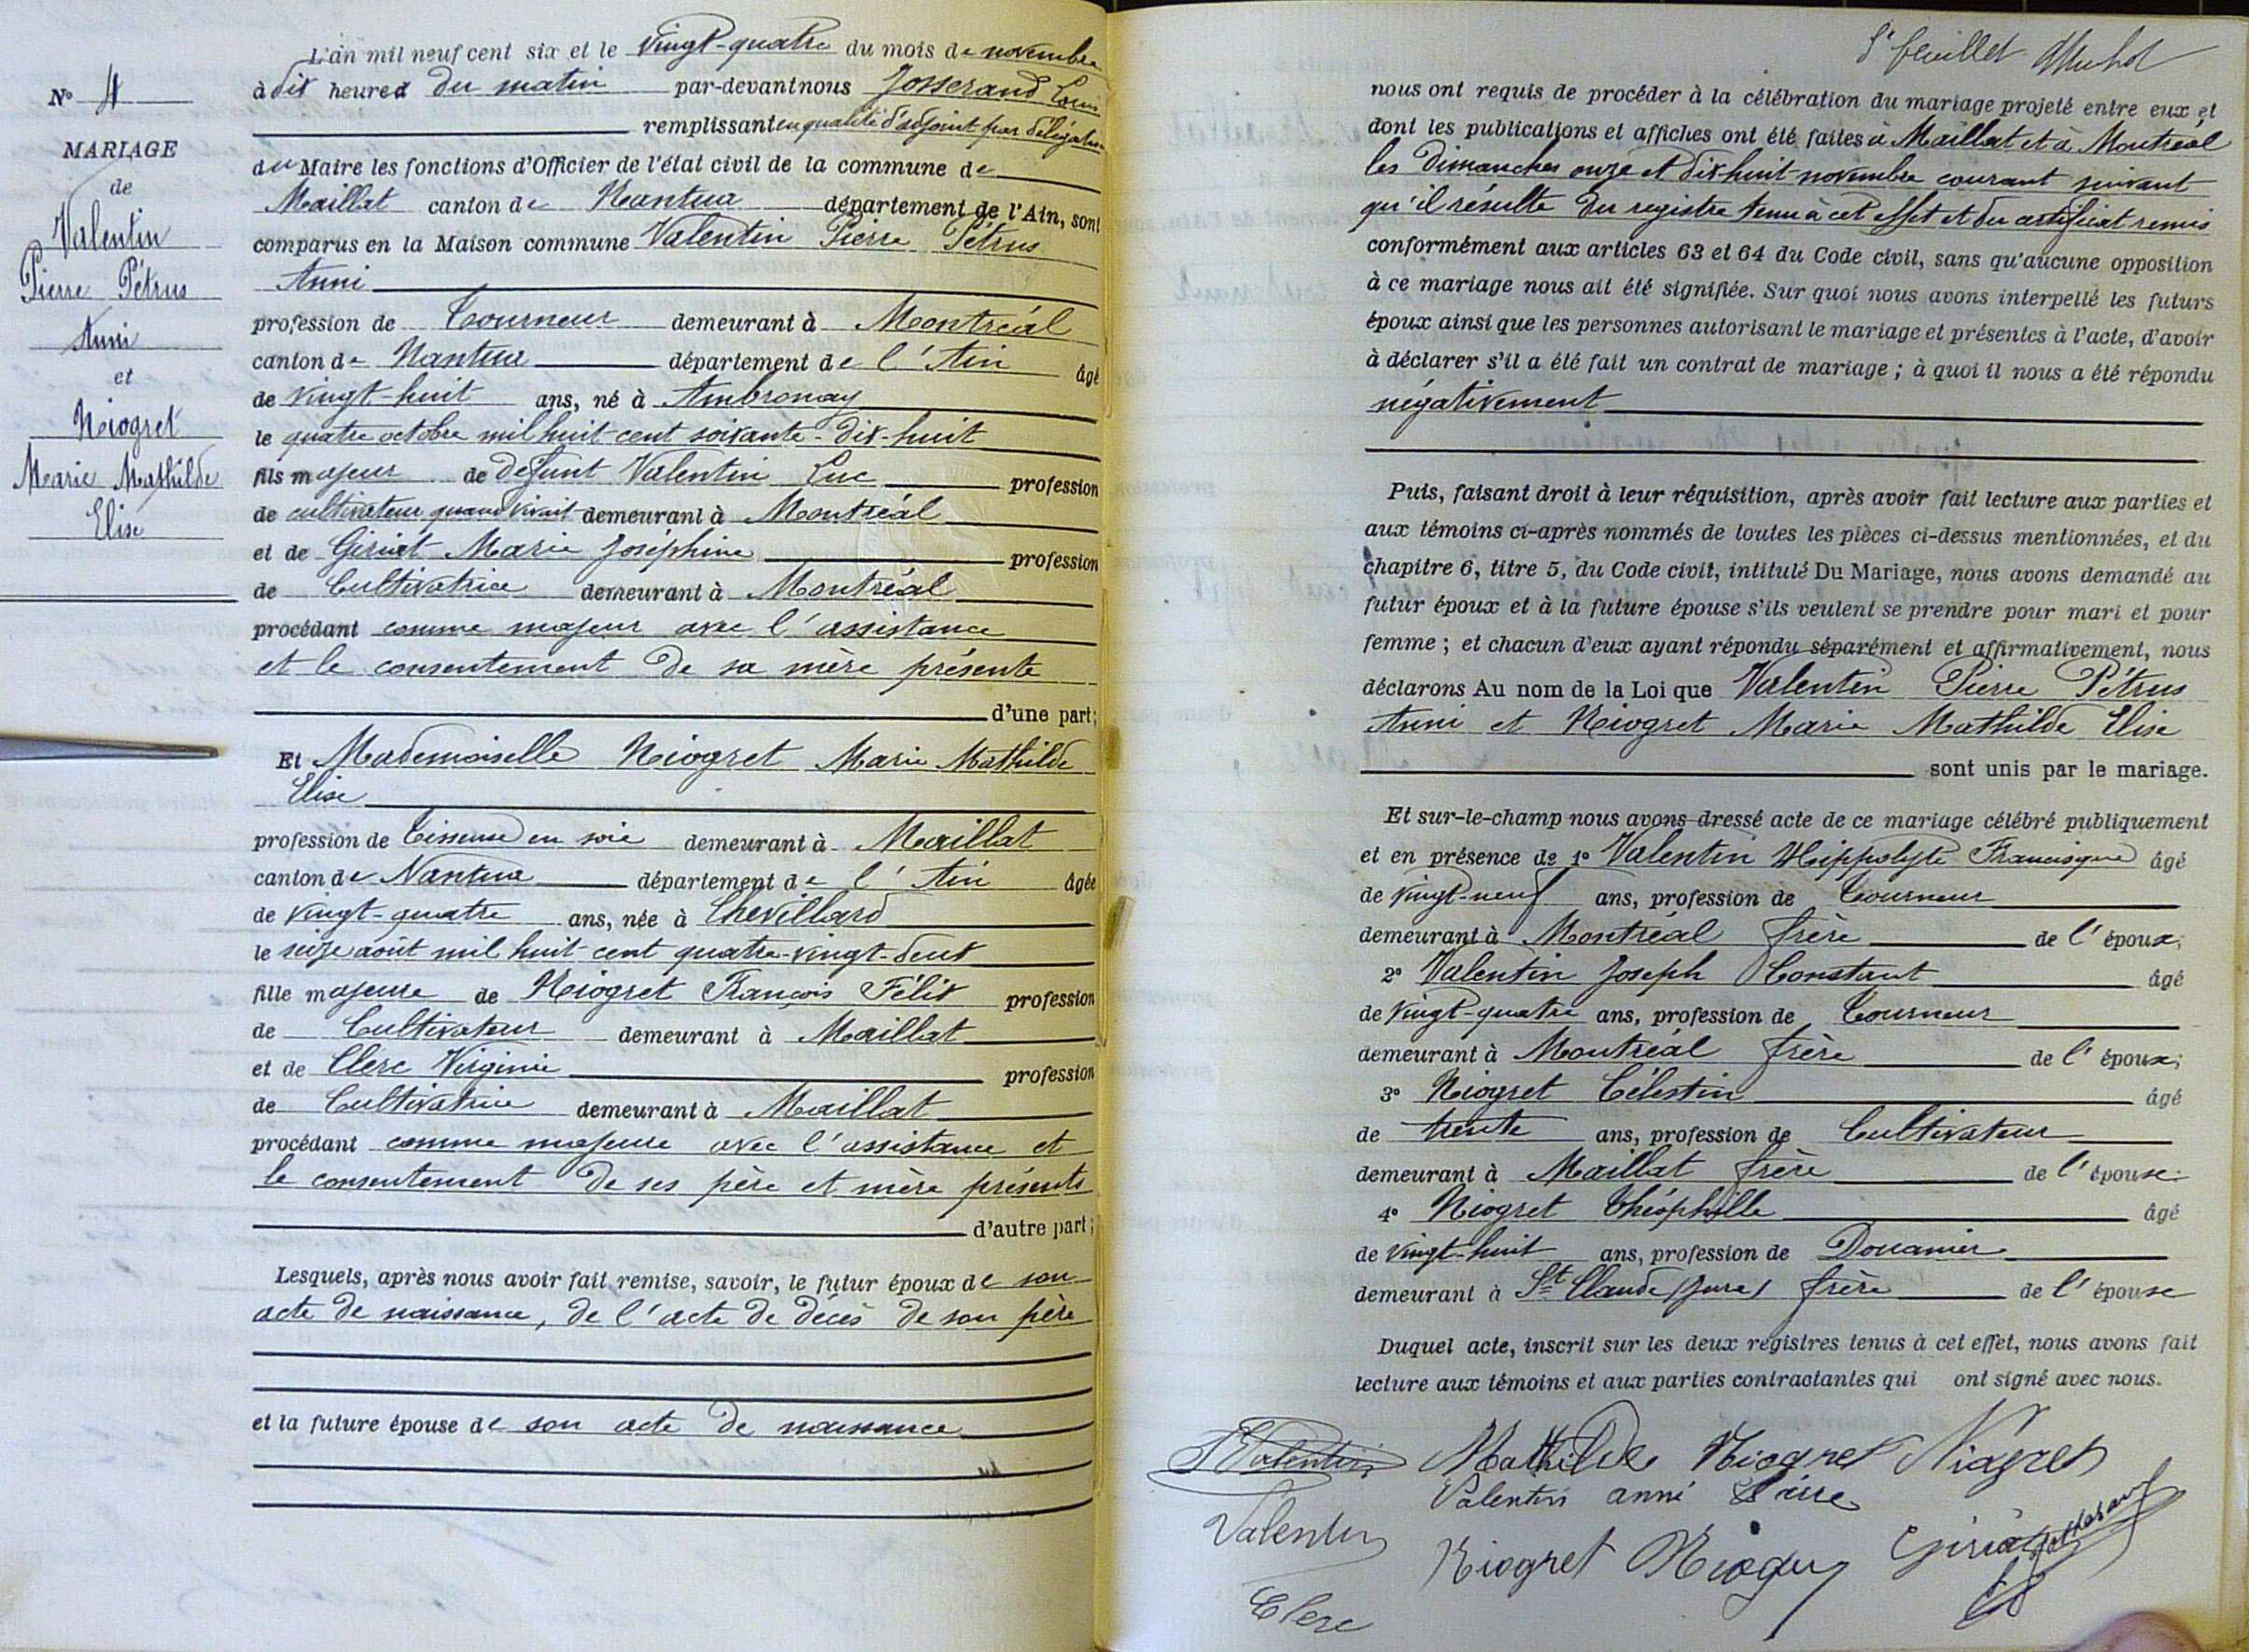 N° 4
MARIAGE
de
Valentin
Pierre Pétrus
Anni
et
Niogret
Marie Mathilde
Elise
L'an mil neuf cent six et le vingt-quatre du mois de novembre
à dix heures du matin par-devant nous Josserand Louis
remplissant en qualité d'adjoint par délégation
du Maire les fonctions d'Officier de l'état civil de la commune de
Maillat canton de Nantua département de l'Ain, sont
comparus en la Maison commune Valentin Pierre Pétrus
Anni
profession de Tourneur demeurant à Montréal
canton de Nantua département de l'Ain âgé
de vingt-huit ans, né à Ambronay
le quatre octobre mil huit cent soixante-dix-huit
fils majeur de défunt Valentin Luc profession
de cultivateur quand vivait demeurant à Montréal
et de Giriat Marie Joséphine profession
de Cultivatrice demeurant à Montréal
procédant comme majeur avec l'assistance
et le consentement de sa mère présente
d'une part;
Et Mademoiselle Niogret Marie Mathilde
Elise
profession de Tisseuse en soie demeurant à Maillat
canton de Nantua département de l'Ain âgée
de vingt-quatre ans, née à Chevillard
le seize août mil huit cent quatre-vingt-deux
fille majeure de Niogret François Félix profession
de Cultivateur demeurant à Maillat
et de Clerc Virginie profession
de Cultivatrice demeurant à Maillat
procédant comme majeure avec l'assistance et
le consentement de ses père et mère présents
d'autre part;
Lesquels, après nous avoir fait remise, savoir, le futur époux de son
acte de naissance, de l'acte de décès de son père
et la future épouse de son acte de naissance
feuillet
nous ont requis de procéder à la célébration du mariage projeté entre eux et
dont les publications et affiches ont été faites à Maillat et à Montréal
les dimanches onze et dix huit novembre courant suivant
qu'il résulte du registre tenu à cet effet et du certificat remis
conformément aux articles 63 et 64 du Code civil, sans qu'aucune opposition
à ce mariage nous ait été signifiée. Sur quoi nous avons interpellé les futurs
époux ainsi que les personnes autorisant le mariage et présentes à l'acte, d'avoir
à déclarer s'il a été fait un contrat de mariage; à quoi il nous a été répondu
négativement
Puis, faisant droit à leur réquisition, après avoir fait lecture aux parties et
aux témoins ci-après nommés de toutes les pièces ci-dessus mentionnées, et du
chapitre 6, titre 5, du Code civil, intitulé Du Mariage, nous avons demandé au
futur époux et à la future épouse s'ils veulent se prendre pour mari et pour
femme; et chacun d'eux ayant répondu séparément et affirmativement, nous
déclarons Au nom de la Loi que Valentin Pierre Pétrus
Anni et Niogret Marie Mathilde Elise
sont unis par le mariage.
Et sur-le-champ nous avons dressé acte de ce mariage célébré publiquement
et en présence de 1° Valentin Hippolyte Francisque âgé
de vingt-neuf ans, profession de Tourneur
demeurant à Montréal frère de l'époux;
2° Valentin Joseph Constant âgé
de vingt-quatre ans, profession de Tourneur
demeurant à Montréal frère de l'époux;
3° Niogret Célestin âgé
de trente ans, profession de Cultivateur
demeurant à Maillat frère de l'épouse
4° Niogret Théophille âgé
de vingt-huit ans, profession de Douanier
demeurant à St Claude (Jura) frère de l'épouse
Duquel acte, inscrit sur les deux registres tenus à cet effet, nous avons fait
lecture aux témoins et aux parties contractantes qui ont signé avec nous.
Valentin Mathilde Niogret Niogret
Valentin anni
Valentin
Niogret Giriat
Clerc